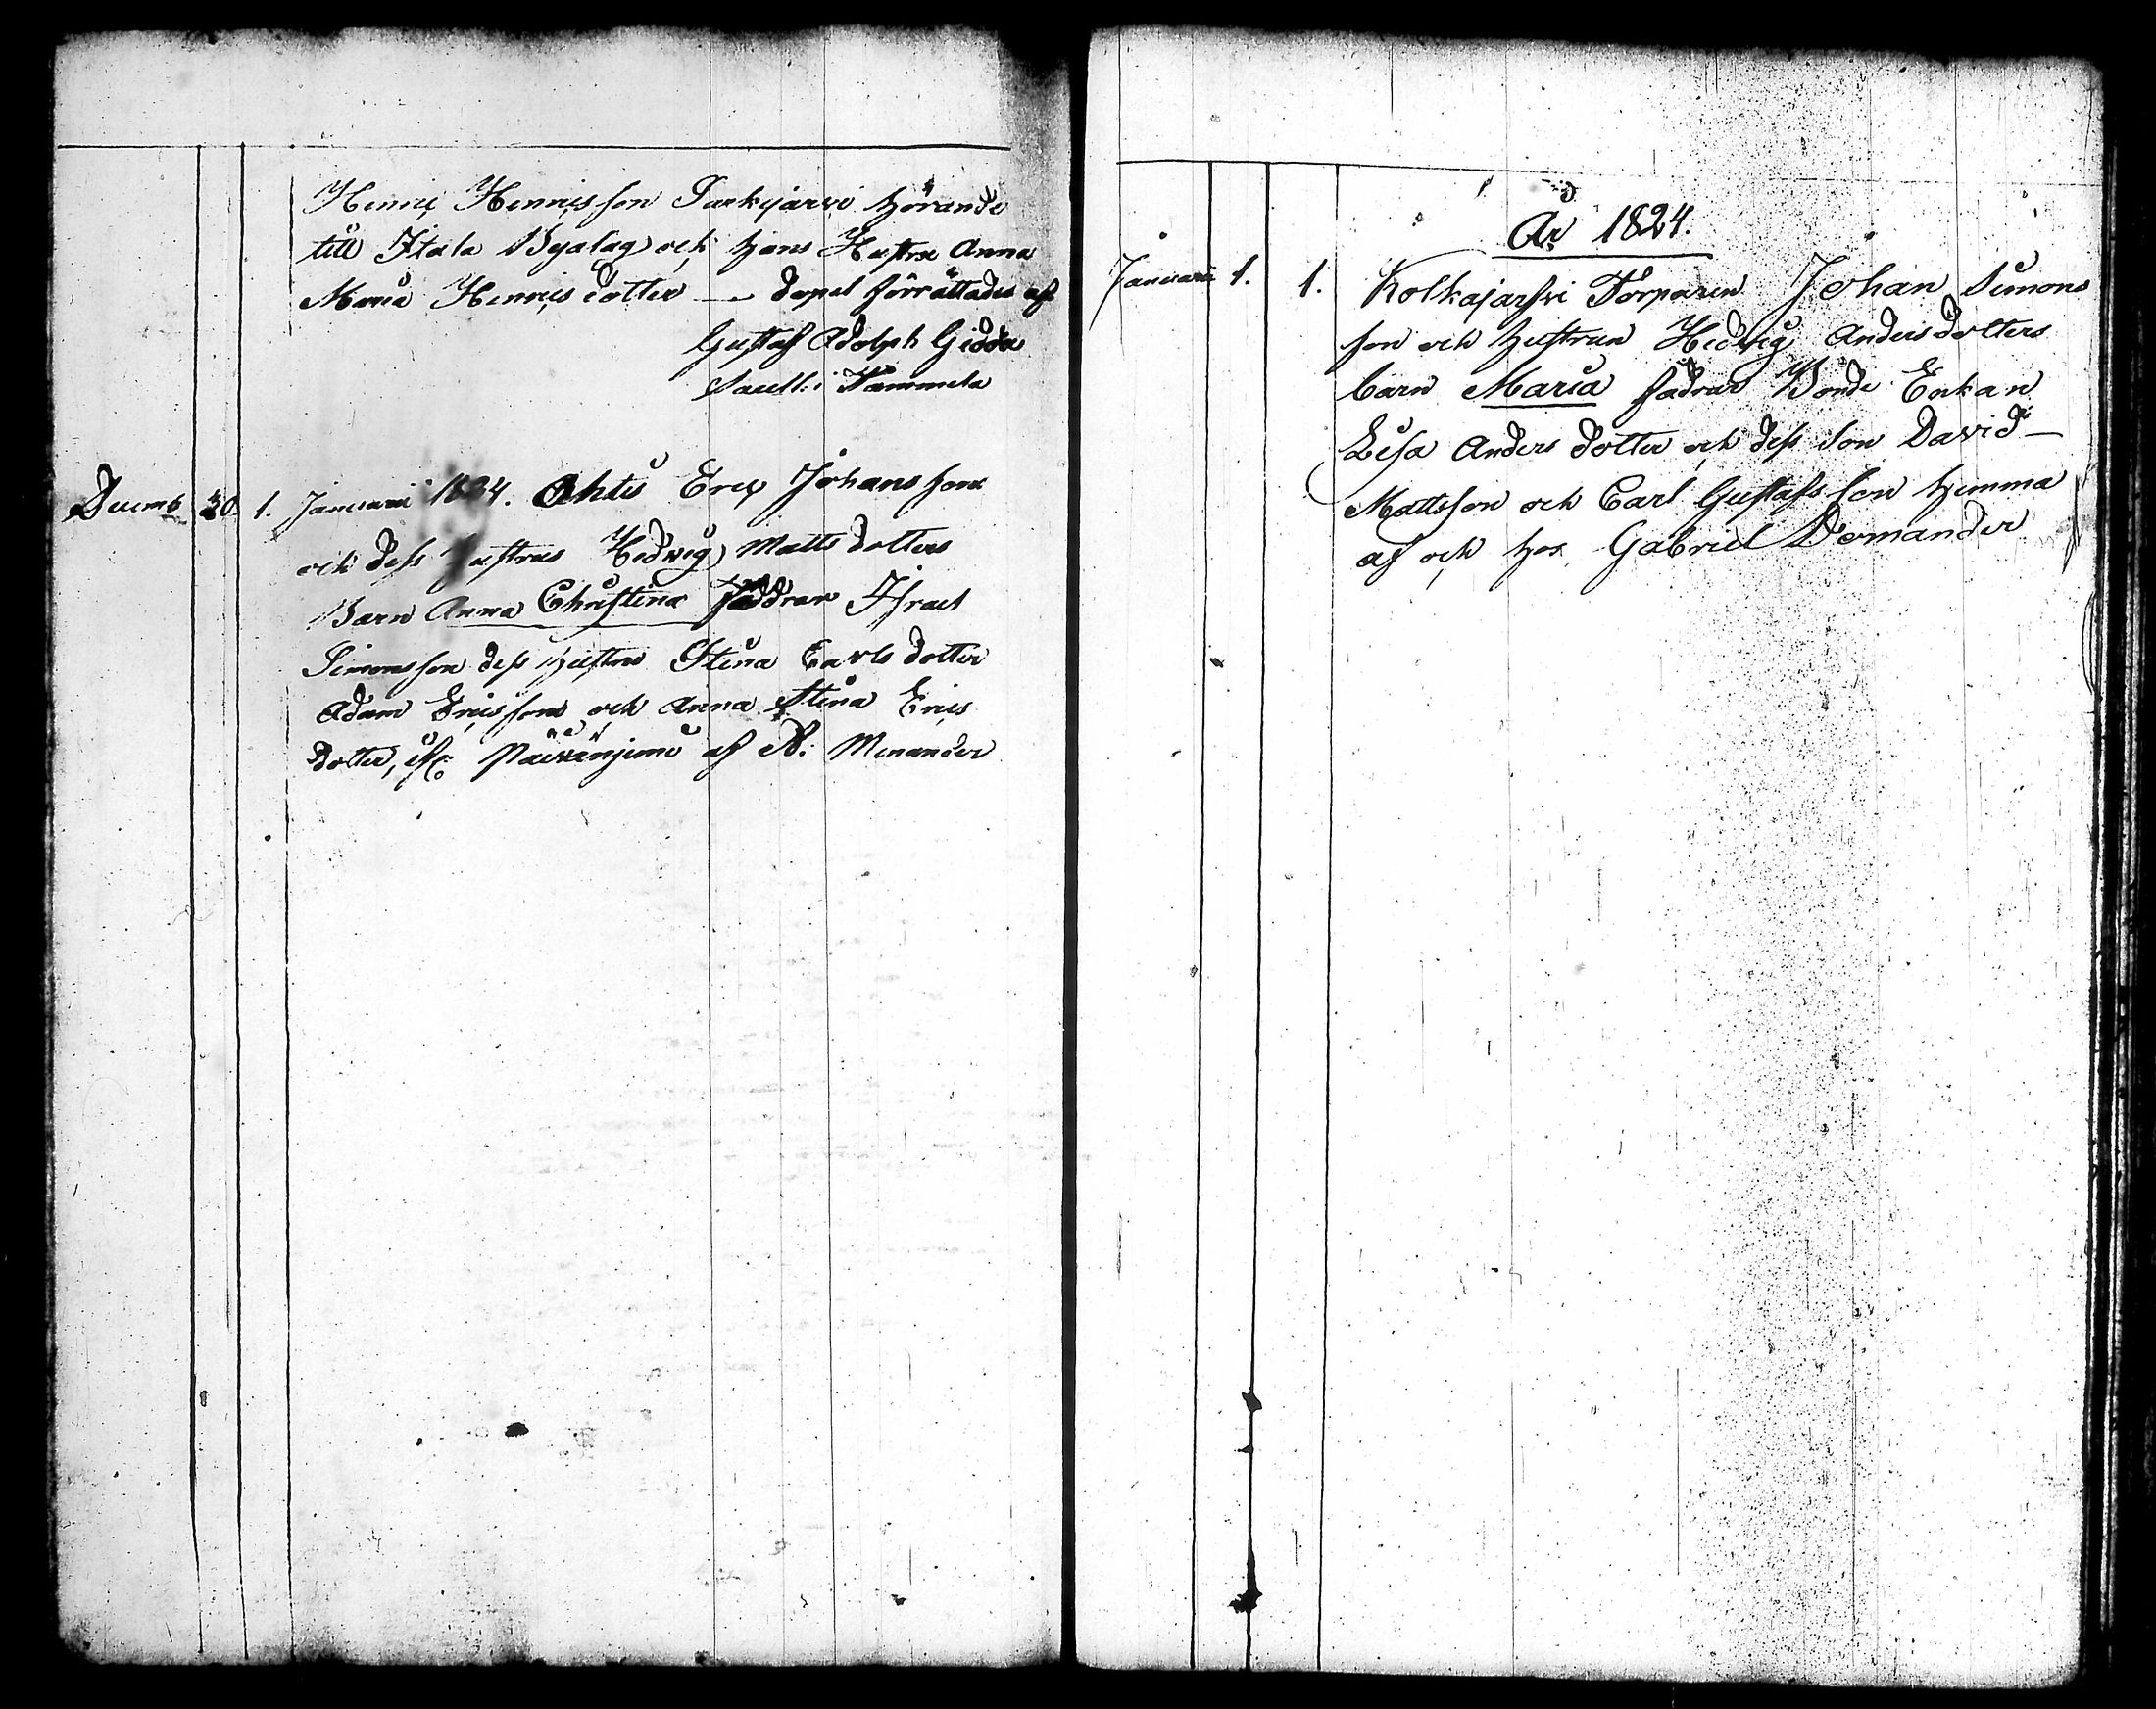 Henric Henricsson Sarkijarvi hörande
till Itala Byalag och hans Hustru Anna
Maria Henricsdotter — dopet förrättades af
Gustaf Adolph Gidda
Sacell: i Tammela
Decemb 30 1. Januarii 1824. Ahtis Eric Johansson
och dess hustrus Hedvig Mattsdotters
Barn Anna Christina faddrar Israel
Simonsson dess hustru Stina Carlsdotter
Adam Ericsson och Anna Stina Erics
dotter, af A: Menander
År 1824.
Januarii 1. 1. Kolkajarfvi Torparen Johan Simons
son och hustrun Hedvig Andersdotters
barn Maria fadrar Bonde Enkan
Lisa Anders dotter och dess son David —
Mattsson och Carl Gustafsson hemma
af och hos Gabriel